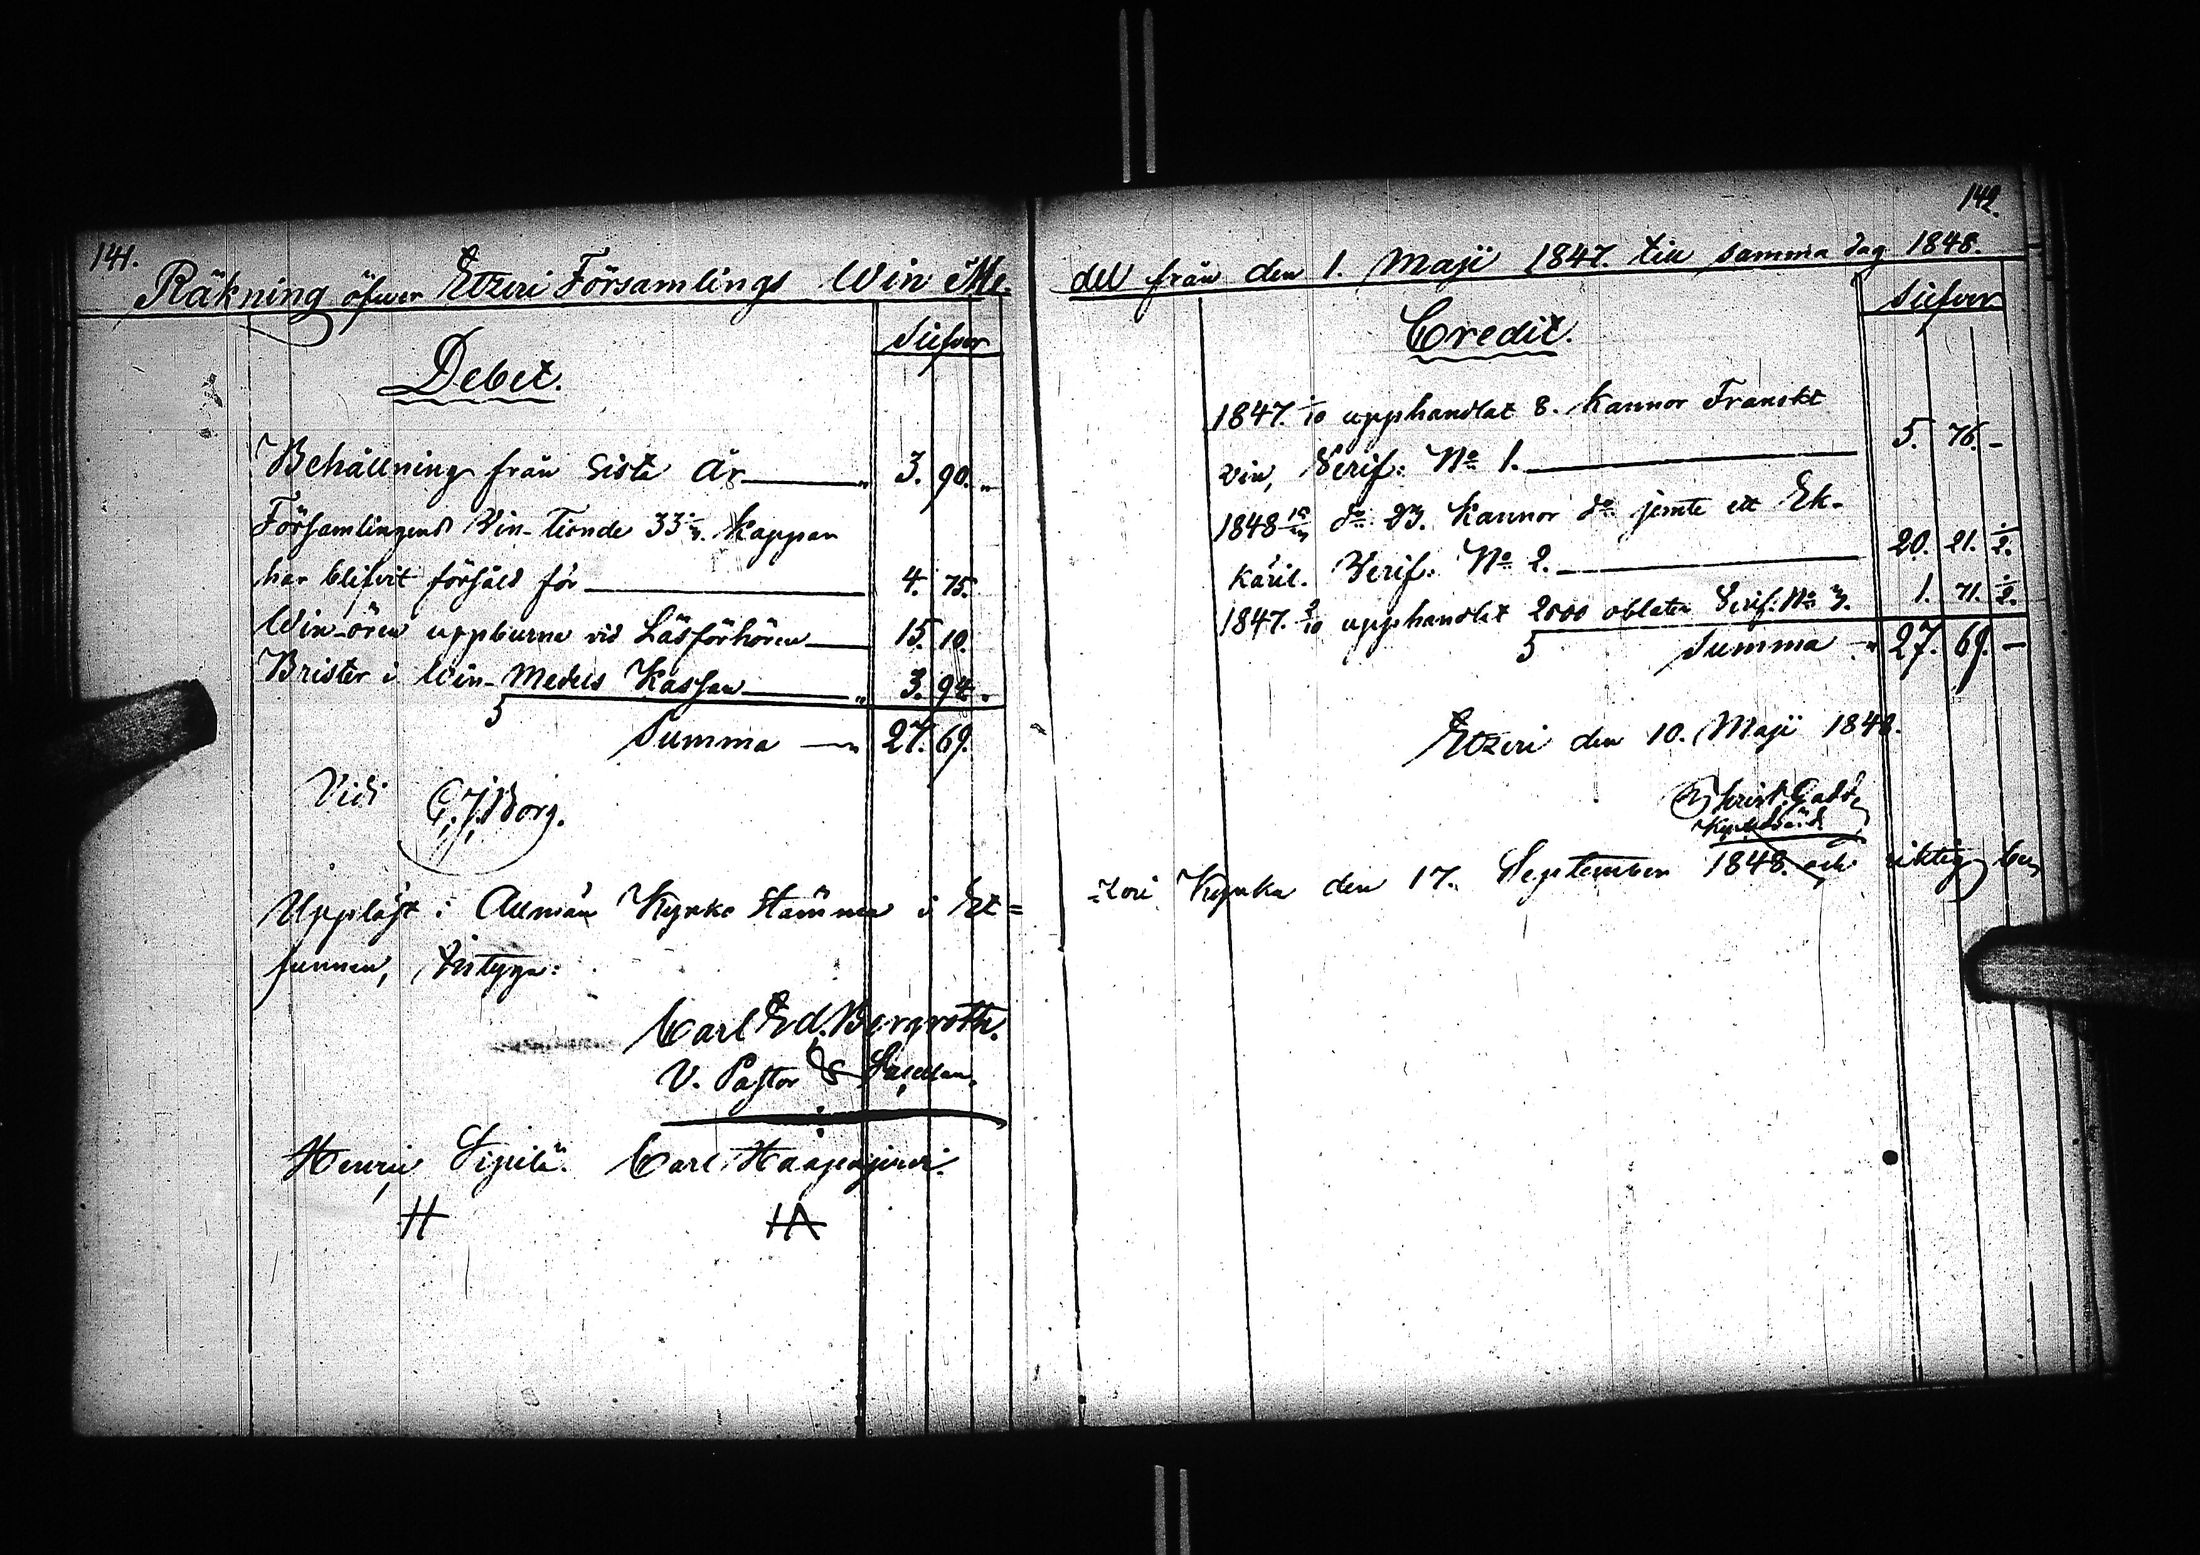 141.
Räkning öfwer Etzeri Församlings Win Me-
Silfver
Debet.
Behållning från sista År " 3. 90. "
Församlingens Vin-Tionde 33 1/2. Kappar
har blifvit försåld för 4. 75.
Win-ören uppburne vid Läsförhören 15. 10.
Brister i Win-Medels Kassan " 3. 94.
Summa " 27. 69.
Vidi C. J. Borg.
Uppläst i Allmän Kyrko Stämma i Et=
funnen, betyga:
Carl Ed. Bergroth.
V. Pastor & Sacellan.
Henric Sipilä. Carl Haapajervi.
H HA
142.
del från den 1. Maji 1847. till samma dag 1848.
Silfver
Credit.
1847. /10 upphandlat 8. Kannor Franskt
vin, Verif: No 1. 5. 76. -
1848 do 23. Kannor do jemte ett Ek-
käril. Verif: No 2. 20. 21. 1/2.
1847. /10 upphandlat 2000 oblater Verif: No 3. 1. 71. 1/2.
Summa " 27. 69. -
Etzeri den 10. Maji 1848.
Christ. Gadd,
Kyrkovärd
=zeri Kyrka den 17. September 1848. och riktig be-